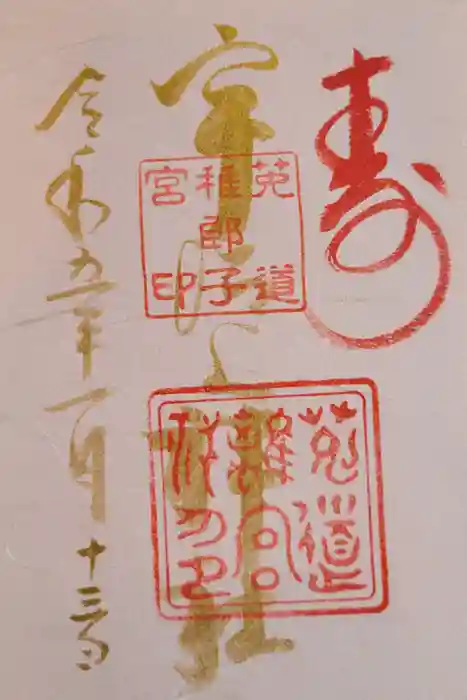 寿
宇治神社
菟道
稚郎子
宮印
菟道
離宮
令和五年一月十三日